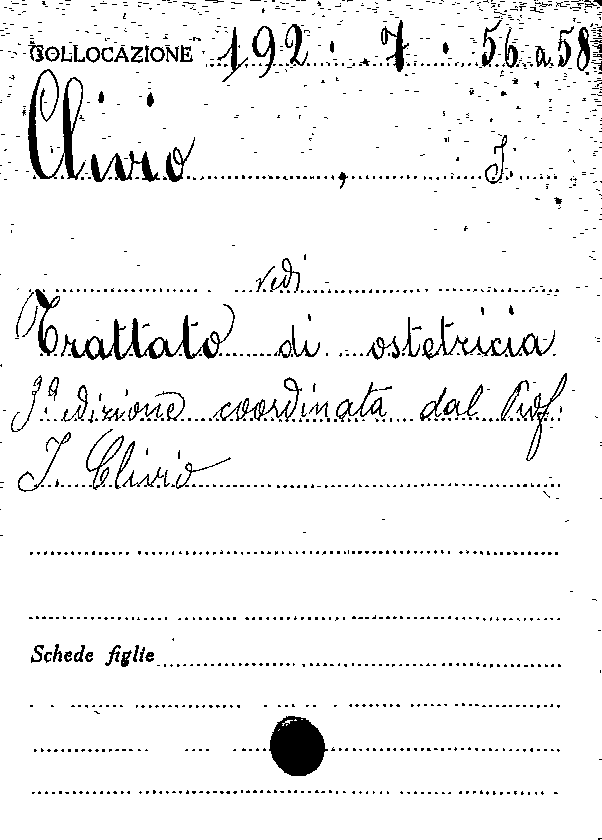 COLLOCAZIONE 192. .7. 56 a 58
Clivio, I.
vedi
Trattato di ostetricia
3ª edizione coordinata dal Prof.
I. Clivio
Schede figlie